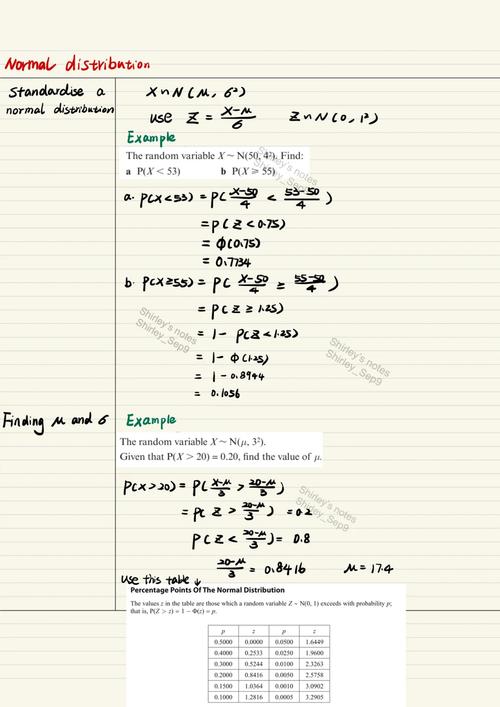 Normal distribution
Standardise a normal distribution
X∼N(μ, σ²)
use Z = (X-μ)/σ   Z∼N(0, 1²)
Example
The random variable X ~ N(50, 4²). Find:
a P(X < 53)   b P(X ⩾ 55)
a. P(X<53) = P( (X-50)/4 < (53-50)/4 )
= P( Z < 0.75)
= Φ(0.75)
= 0.7734
b. P(X≥55) = P( (X-50)/4 ≥ (55-50)/4 )
= P( Z ≥ 1.25)
= 1 - P(Z < 1.25)
= 1 - Φ(1.25)
= 1 - 0.8944
= 0.1056
Shirley's notes
Shirley_Sep9
Shirley's notes
Shirley_Sep9
Shirley's notes
Shirley_Sep9
Finding μ and σ
Example
The random variable X ~ N(μ, 3²).
Given that P(X > 20) = 0.20, find the value of μ.
P(X>20) = P( (X-μ)/3 > (20-μ)/3 )
= P( Z > (20-μ)/3 ) = 0.2
P( Z < (20-μ)/3 ) = 0.8
(20-μ)/3 = 0.8416   μ = 17.4
Shirley's notes
Shirley_Sep9
use this table ↓
Percentage Points Of The Normal Distribution
The values z in the table are those which a random variable Z ~ N(0, 1) exceeds with probability p;
that is, P(Z > z) = 1 − Φ(z) = p.
p z p z
0.5000 0.0000 0.0500 1.6449
0.4000 0.2533 0.0250 1.9600
0.3000 0.5244 0.0100 2.3263
0.2000 0.8416 0.0050 2.5758
0.1500 1.0364 0.0010 3.0902
0.1000 1.2816 0.0005 3.2905